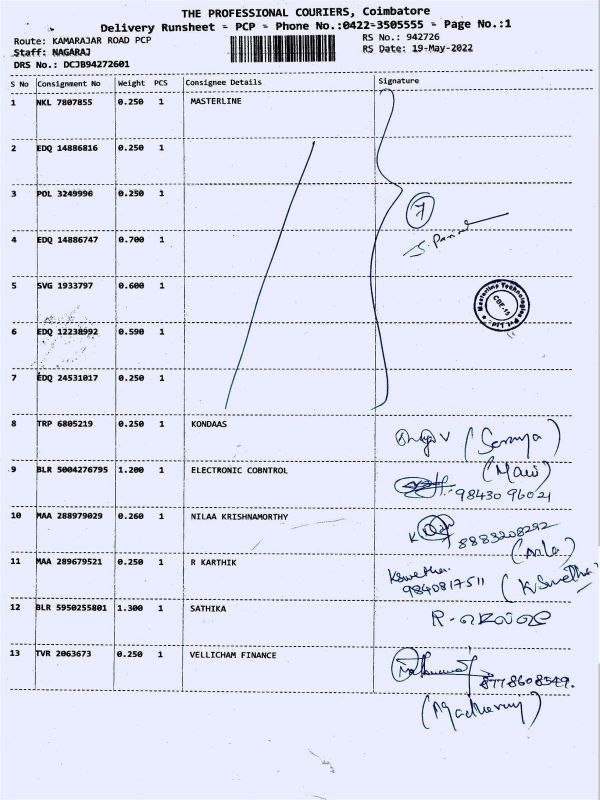 THE PROFESSIONAL COURIERS, Coimbatore
Delivery Runsheet = PCP = Phone No.:0422-3505555 = Page No.:1
Route: KAMARAJAR ROAD PCP RS No.: 942726
Staff: NAGARAJ RS Date: 19-May-2022
DRS No.: DCJB94272601
S No Consignment No Weight PCS Consignee Details Signature
1 NKL 7807855 0.250 1 MASTERLINE
2 EDQ 14886816 0.250 1
3 POL 3249996 0.250 1
7
4 EDQ 14886747 0.700 1
5 SVG 1933797 0.600 1
Masterline Technologies Pvt. Ltd. CBE-15
6 EDQ 12238992 0.590 1
7 EDQ 24531017 0.250 1
8 TRP 6805219 0.250 1 KONDAAS
9 BLR 5004276795 1.200 1 ELECTRONIC COBNTROL
98430 96021
10 MAA 288979029 0.260 1 NILAA KRISHNAMORTHY
8883208292
11 MAA 289679521 0.250 1 R KARTHIK
Kswetha.
9840817511 (K Swetha)
12 BLR 5950255801 1.300 1 SATHIKA
13 TVR 2063673 0.250 1 VELLICHAM FINANCE
8778608549.